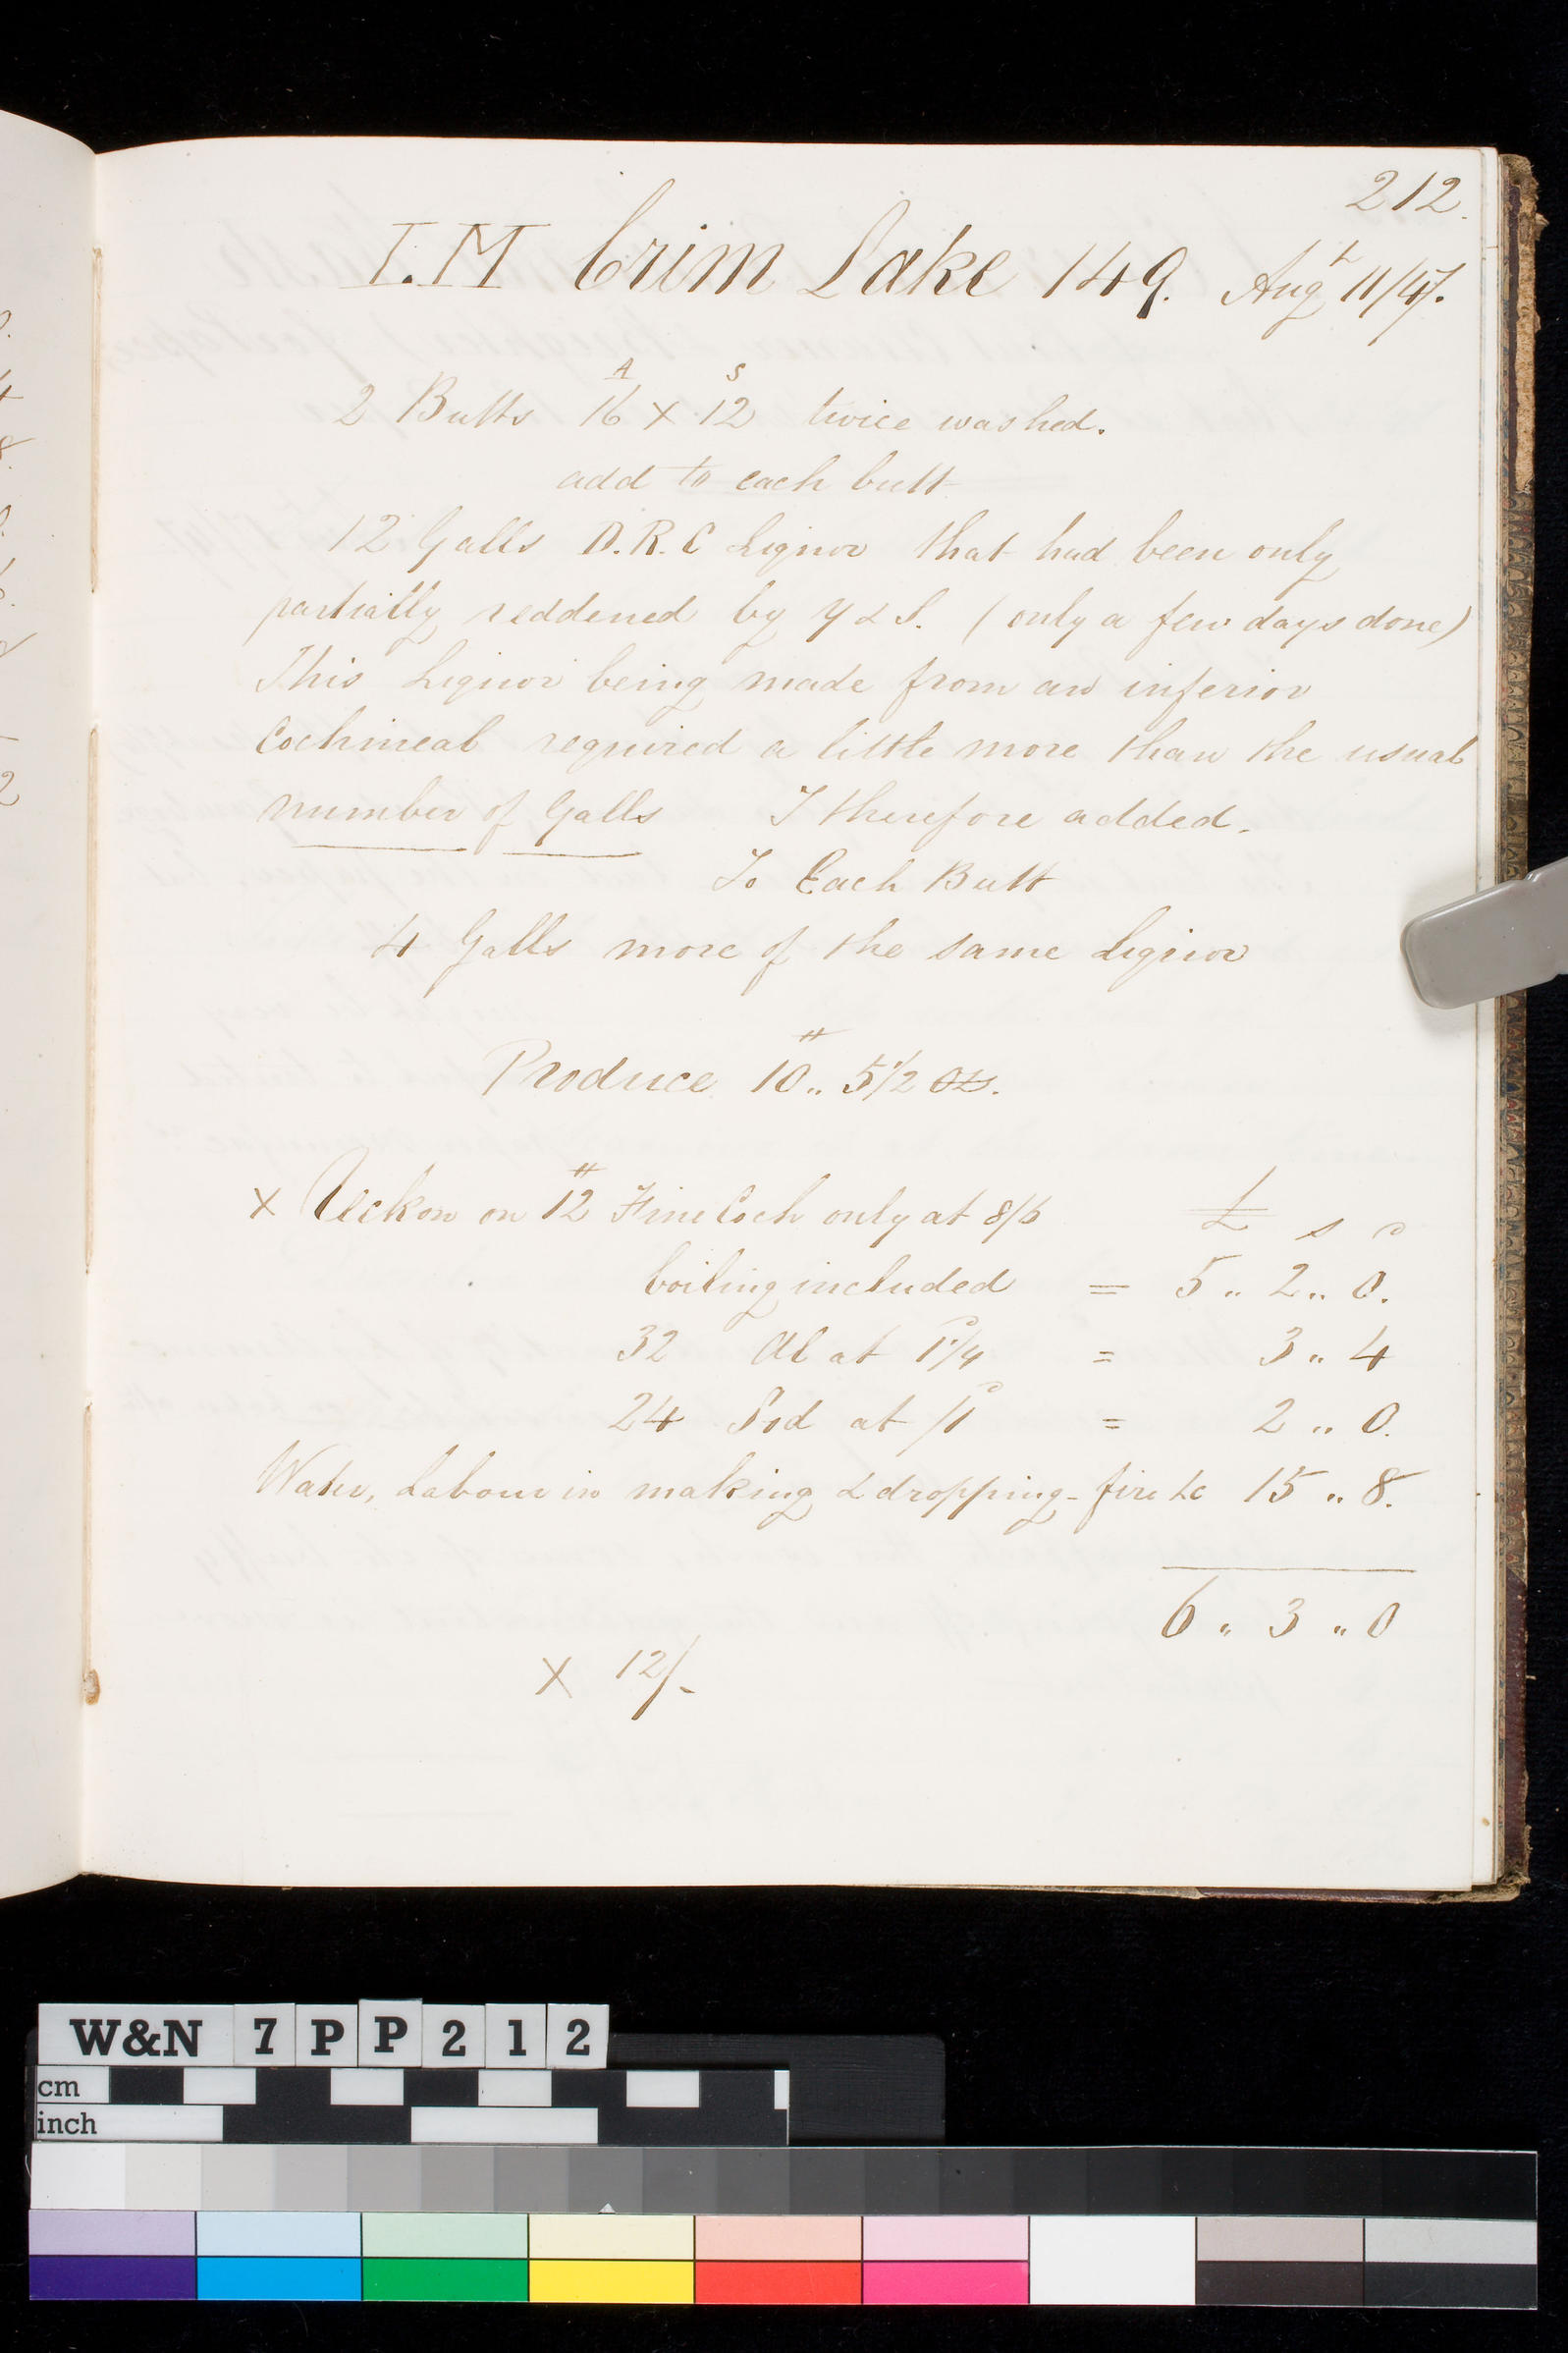 212.
I.M Crim Lake 149. Augt 11/47.
A S
2 Butts 16 x 12 twice washed.
add to each butt
12 Galls D.R.C Liquor that had been only
partially reddened by Y & S. (only a few days done)
This Liquor being made from an inferior
Cochineal required a little more than the usual
number of Galls I therefore added.
To Each Butt
4 Galls more of the same Liquor
Produce 10 # .. 5 1/2 oz.
x Reckon on 12 # Fine Coch only at 8/6 £ s d
boiling included = 5 .. 2 .. 0.
32 Al at 1 1/4 d = 3 .. 4
24 Sod at /1 d = 2 .. 0.
Water, Labour in making & dropping - fire &c 15 .. 8.
6 .. 3 .. 0
x 12/-
W&N 7 P P 2 1 2
cm
inch